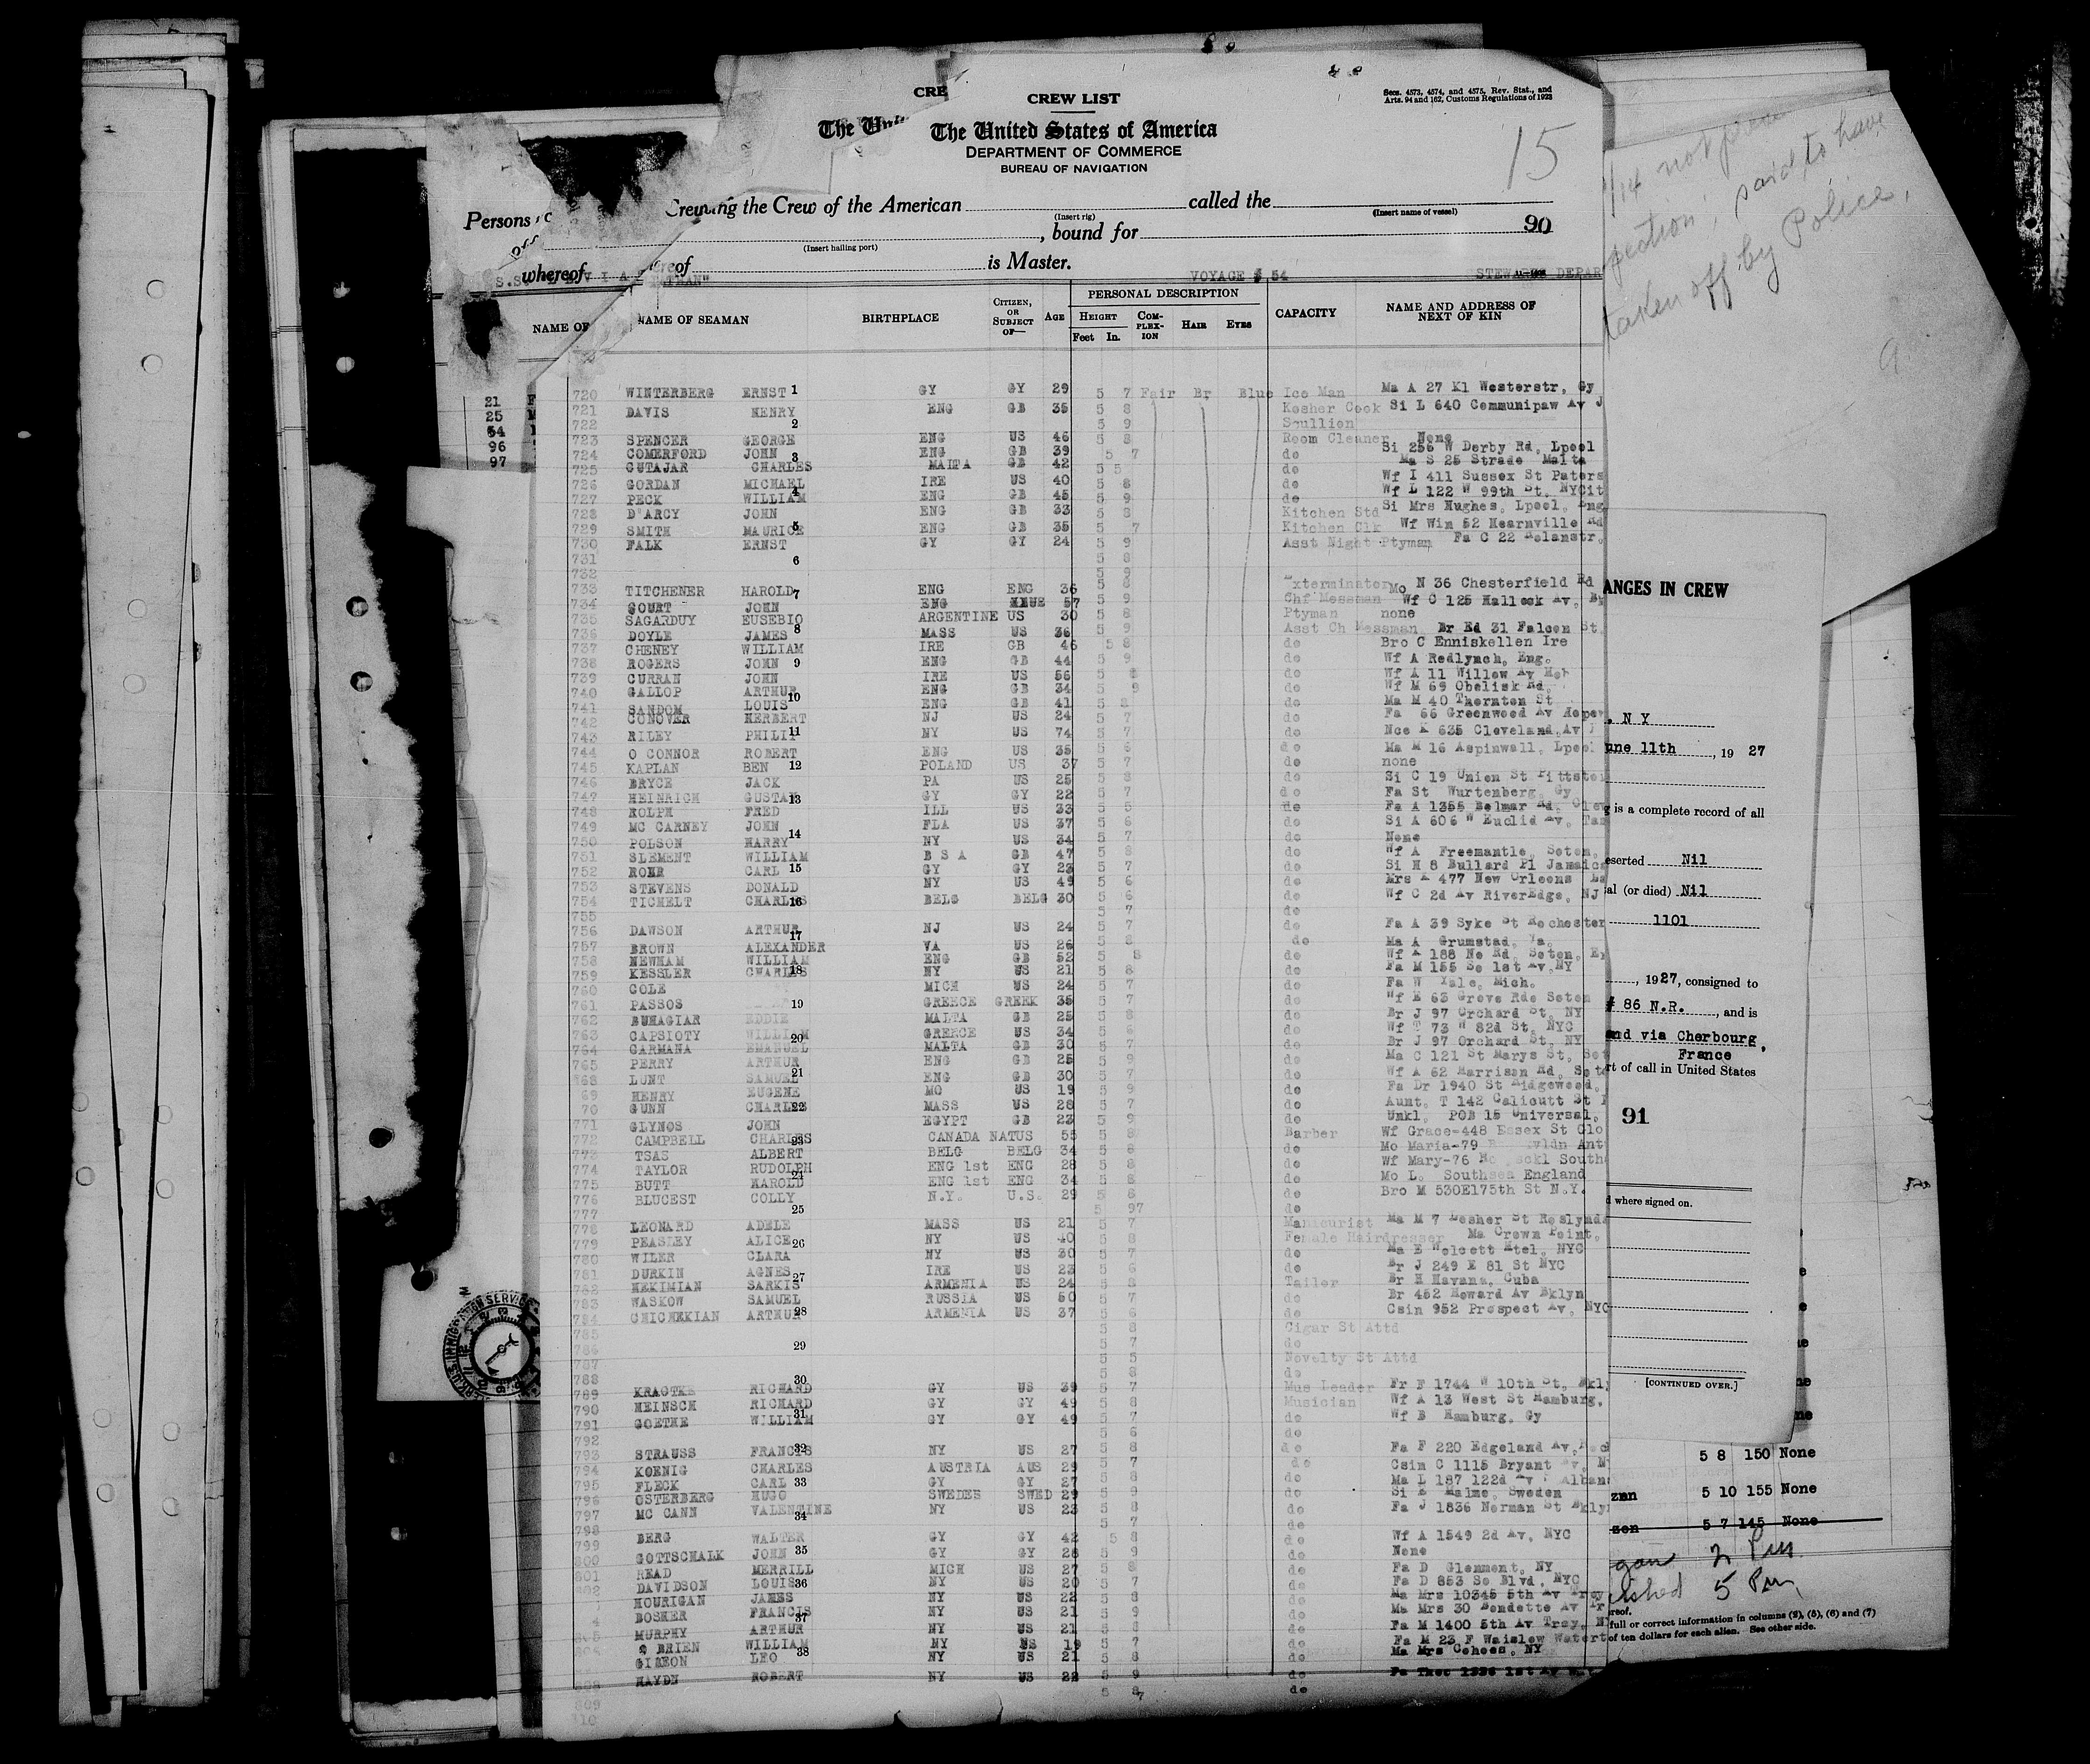 CRE
CREW LIST
Secs. 4573, 4574, and 4575, Rev. Stat., and
Arts. 94 and 162, Customs Regulations of 1923
The United States of America
DEPARTMENT OF COMMERCE
BUREAU OF NAVIGATION
15
the Crew of the American called the
(Insert rig) (Insert name of vessel)
90
, bound for
(Insert hailing port)
whereof is Master.
VOYAGE # 54
NAME OF SEAMAN BIRTHPLACE CITIZEN, OR SUBJECT OF— AGE PERSONAL DESCRIPTION CAPACITY NAME AND ADDRESS OF NEXT OF KIN
HEIGHT COMPLEXION HAIR EYES
Feet In.
720 WINTERBERG ERNST 1 GY GY 29 5 7 Fair Br Blue Ice Man Ma A 27 Kl Westerstr, Gy
721 DAVIS HENRY ENG GB 35 5 8 Kosher Cook Si L 640 Communipaw Av J
722 2 5 9 Scullion
723 SPENCER GEORGE ENG US 46 5 8 Room Cleaner None
724 COMERFORD JOHN 3 ENG GB 39 5 7 do Si 256 W Derby Rd, Lpool
725 CUTAJAR CHARLES MALTA GB 42 5 5 do Ma S 25 Strade Malta
726 GORDAN MICHAEL IRE US 40 5 8 do Wf I 411 Sussex St Paters
727 PECK WILLIAM 4 ENG GB 45 5 9 do Wf L 122 W 99th St. NYCit
728 D'ARCY JOHN ENG GB 33 5 8 Kitchen Std Si Mrs Hughes, Lpool, Eng
729 SMITH MAURICE 5 ENG GB 35 5 7 Kitchen Clk Wf Win 52 Hearnville Rd
730 FALK ERNST GY GY 24 5 9 Asst Night Ptyman Fa C 22
731 6 5 8
732 5 9
733 TITCHENER HAROLD 7 ENG ENG 36 5 8 Exterminator Mo N 36 Chesterfield Rd
734 COURT JOHN ENG 57 5 9 Chf Messman Wf C 125 Hallock Av,
735 SAGARDUY EUSEBIO ARGENTINE US 30 5 8 Ptyman none
736 DOYLE JAMES 8 MASS US 36 5 9 Asst Ch Messman Br Ed 31 Falcon St
737 CHENEY WILLIAM IRE GB 46 5 8 do Bro C Enniskellen Ire
738 ROGERS JOHN 9 ENG GB 44 5 9 do Wf A Redlynch, Eng.
739 CURRAN JOHN IRE US 56 5 8 do Wf A 11 Willow Av Hob
740 GALLOP ARTHUR 10 ENG GB 34 5 9 do Wf M 69 Obelisk Rd.
741 SANDOM LOUIS ENG GB 41 5 8 do Ma M 40 Thornton St
742 CONOVER HERBERT NJ US 24 5 7 do Fa 66 Greenwood Av
743 RILEY PHILIP 11 NY US 74 5 7 do Nce 635 Cleveland Av
744 O CONNOR ROBERT ENG US 35 5 6 do Ma M 16 Aspinwall, Lpool
745 KAPLAN BEN 12 POLAND US 37 5 7 do none
746 BRYCE JACK PA US 25 5 8 do Si C 19 Union St Pittston
747 HEINRICH GUSTAV 13 GY GY 22 5 7 do Fa St Wurtenberg, Gy
748 ROLPH FRED ILL US 33 5 5 do Fa A 1355 Belmar Rd. Clev
749 MC CARNEY JOHN FLA US 37 5 6 do Si A 606 W Euclid Av, Tam
750 POLSON HARRY 14 NY US 34 5 7 do None
751 SLEMENT WILLIAM B S A GB 47 5 8 do Wf A Freemantle, Soton,
752 ROHR CARL 15 GY GY 23 5 7 do Si H 8 Bullard Pl Jamaica
753 STEVENS DONALD NY US 49 5 6 do Mrs 477 New Orleons La
754 TICHELT CHARLES 16 BELG BELG 30 5 6 do Wf C 2d Av RiverEdge, NJ
755 5 7 do
756 DAWSON ARTHUR 17 NJ US 24 5 7 do Fa A 39 Syke St Rochester
757 BROWN ALEXANDER VA US 26 5 8 do Ma A Grumstad, Va.
758 NEWHAM WILLIAM ENG GB 52 5 8 do Wf A 188 Ne Rd, Soton,
759 KESSLER CHARLES 18 NY US 21 5 8 do Fa M 155 So 1st Av, NY
760 COLE MICH US 24 5 7 do Fa W Yale, Mich.
761 PASSOS 19 GREECE GREEK 35 5 7 do Wf E 63 Grove Rde Soton
762 BUHAGIAR EDDIE MALTA GB 25 5 8 do Br J 97 Orchard St, NY
763 CAPSIOTY WILLIAM 20 GREECE US 34 5 6 do Wf T 73 W 82d St, NYC
764 CARMANA EMANUEL MALTA GB 30 5 7 do Br J 97 Orchard St, NY
765 PERRY ARTHUR ENG GB 25 5 9 do Ma C 121 St Marys St, Sot
768 LUNT SAMUEL 21 ENG GB 30 5 7 do Wf A 62 Harrison Rd, Soto
69 HENRY EUGENE MO US 19 5 9 do Fa Dr 1940 St Ridgewood,
70 GUNN CHARLES 22 MASS US 28 5 7 do Aunt, T 142 Calicutt St
771 GLYNOS JOHN EGYPT GB 23 5 9 do Unkl, POB 15 Universal,
772 CAMPBELL CHARLES 23 CANADA NATUS 55 5 8 Barber Wf Grace-448 Essex St Glo
773 TSAS ALBERT BELG BELG 34 5 8 do Mo Maria-79
774 TAYLOR RUDOLPH 24 ENG 1st ENG 28 5 8 do Wf Mary-76
775 BUTT HAROLD ENG 1st ENG 34 5 8 do Mo L. Southsea England
776 BLUCEST COLLY N.Y. U.S. 29 5 8 do Bro M 530E175th St N.Y.
777 25 5 97 do
778 LEONARD ADELE MASS US 21 5 7 Manicurist Ma M 7 Lesher St Roslynda
779 PEASLEY ALICE 26 NY US 40 5 8 Female Hairdresser Ma Crown Point,
780 WILER CLARA NY US 30 5 7 do Ma E Wolcott Htel, NYC
781 DURKIN AGNES 27 IRE US 23 5 6 do Br J 249 E 81 St NYC
782 HEKIMIAN SARKIS ARMENIA US 24 5 8 Tailor Br H Havana, Cuba
783 WASKOW SAMUEL RUSSIA US 50 5 7 do Br 452 Howard Av Bklyn
784 CHICHEKIAN ARTHUR 28 ARMENIA US 37 5 6 do Csin 952 Prospect Av, NYC
785 5 8 Cigar St Attd
786 29 5 7 do
787 5 5 Novelty St Attd
788 30 5 8 do
789 KRAGTKE RICHARD GY US 39 5 7 Mus Leader Fr F 1744 W 10th St, Bkly
790 HEINSCH RICHARD GY GY 49 5 8 Musician Wf A 13 West St Hamburg,
791 GOETHE WILLIAM 31 GY GY 49 5 7 do Wf B Hamburg, Gy
792 5 6 do
793 STRAUSS FRANCIS 32 NY US 27 5 8 do Fa F 220 Edgeland Av,
794 KOENIG CHARLES AUSTRIA AUS 29 5 7 do Csin C 1115 Bryant Av, N
795 FLECK CARL 33 GY GY 27 5 8 do Ma L 187 122d Av Alban
796 OSTERBERG HUGO SWEDES SWED 29 5 9 do Si E Malmo, Sweden
797 MC CANN VALENTINE 34 NY US 23 5 8 do Fa J 1836 Norman St Bkly
798 5 7 do
799 BERG WALTER GY GY 42 5 8 do Wf A 1549 2d Av, NYC
800 GOTTSCHALK JOHN 35 GY GY 28 5 9 do None
801 READ MERRILL MICH US 27 5 8 do Fa D Glemmont, NY
802 DAVIDSON LOUIS 36 NY US 20 5 7 do Fa D 853 So Blvd, NYC
HOURIGAN JAMES NY US 22 5 8 do Ma Mrs 10345 5th Av Troy
4 BOSHER FRANCIS 37 NY US 21 5 9 do Ma Mrs 30 Bendette Av Tr
805 MURPHY ARTHUR NY US 21 5 8 do Fa M 1400 5th Av Troy, N
O BRIEN WILLIAM NY US 19 5 7 do Fa M 23 F Waislow Watert
GIBEON LEO 38 NY US 21 5 8 do Ma Mrs Cohoes, NY
HAYDN ROBERT NY US 22 5 9 do
809 5 8 do
not
said to have
taken off by Police,
ANGES IN CREW
, N Y
une 11th, 19 27
g is a complete record of all
eserted Nil
al (or died) Nil
1101
, 1927, consigned to
# 86 N.R., and is
and via Cherbourg,
France
rt of call in United States
91
d where signed on.
[CONTINUED OVER.]
5 8 150 None
zen 5 10 155 None
zen 5 7 145 None
5 Pm
reof.
full or correct information in columns (2), (5), (6) and (7)
of ten dollars for each alien. See other side.
Persons
of
whereof
NAME OF
21
25
54
96
97